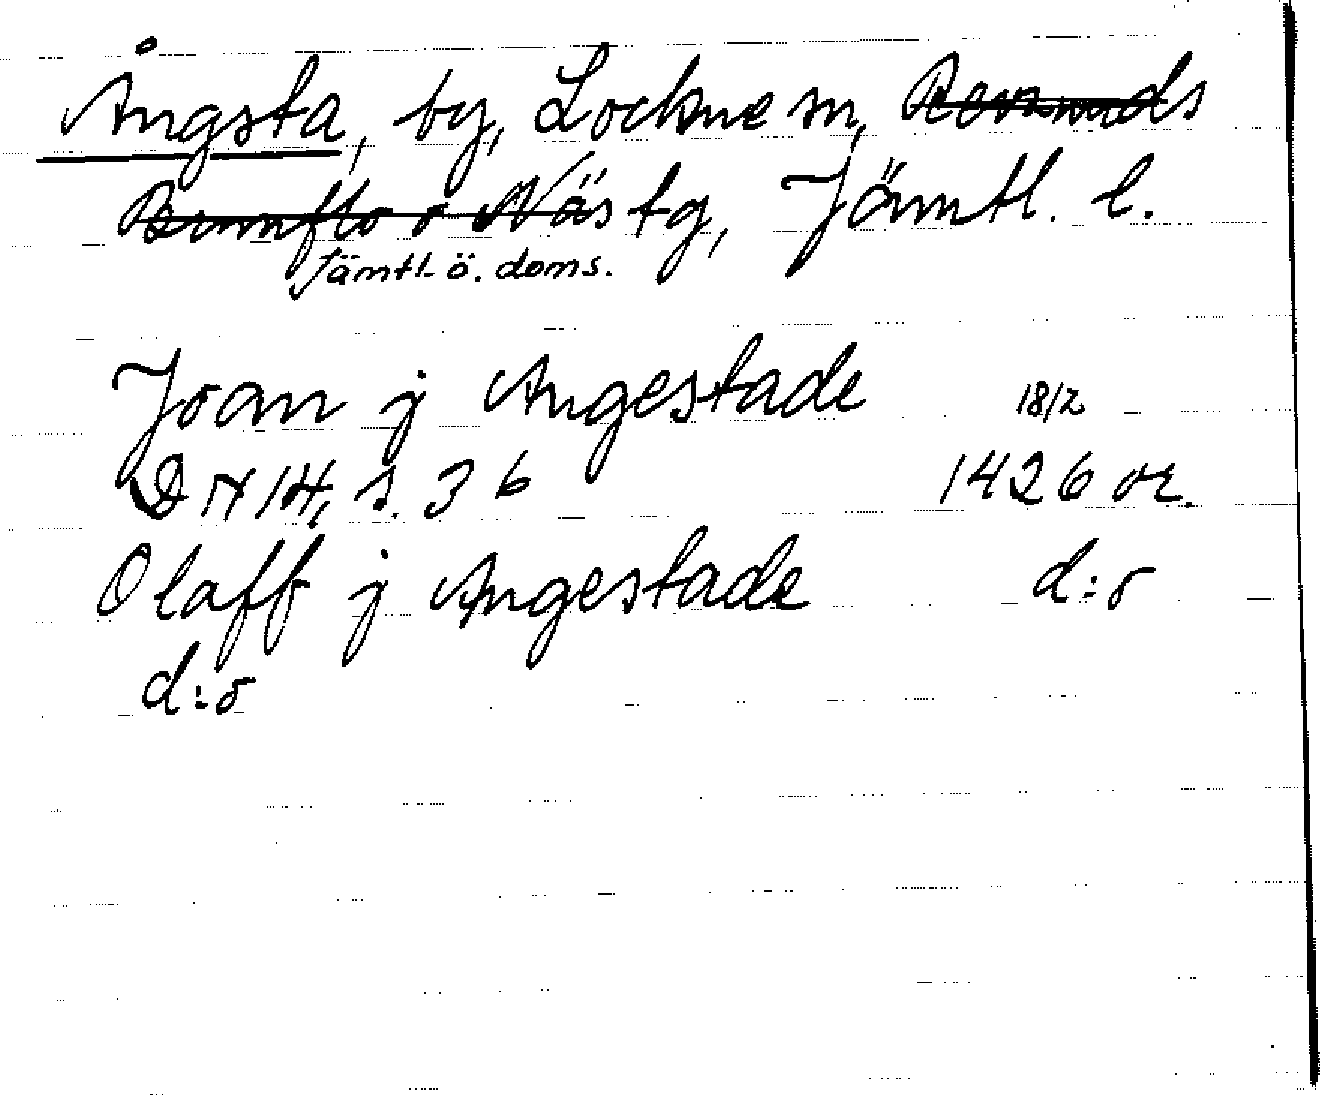 Ångsta, by, Lockne sn, Revsunds
Brunflo o Näs tg, Jämtl. l.
Jämtl. ö. doms.
Joan j Angestade 18/2
DN 14, s. 36 1426 or.
Olaff j Angestade d:o
d:o